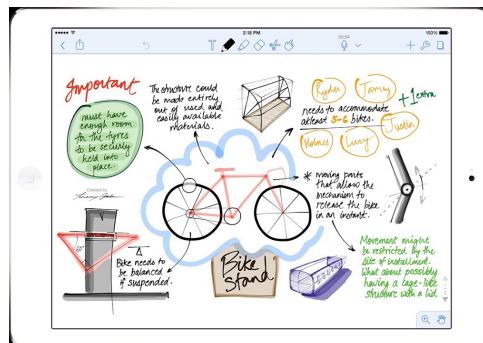 2:18 PM
100%
00:04
T
Important
must have
enough room
for the tyres
to be securly
held into
place.
The structure could
be made entirely
out of used and
easily available
materials.
Ryder
Tommy
+1 extra
needs to accommodate
atleast 5-6 bikes.
Holmes
Lucy
Justin
* moving parts
that allow the
mechanism to
release the bike
in an instant.
Created by
60°
Bike need to
be balanced
& suspended.
Bike
Stand
Movement might
be restricted by the
site of installment.
What about possibly
having a cage-like
structure with a lid